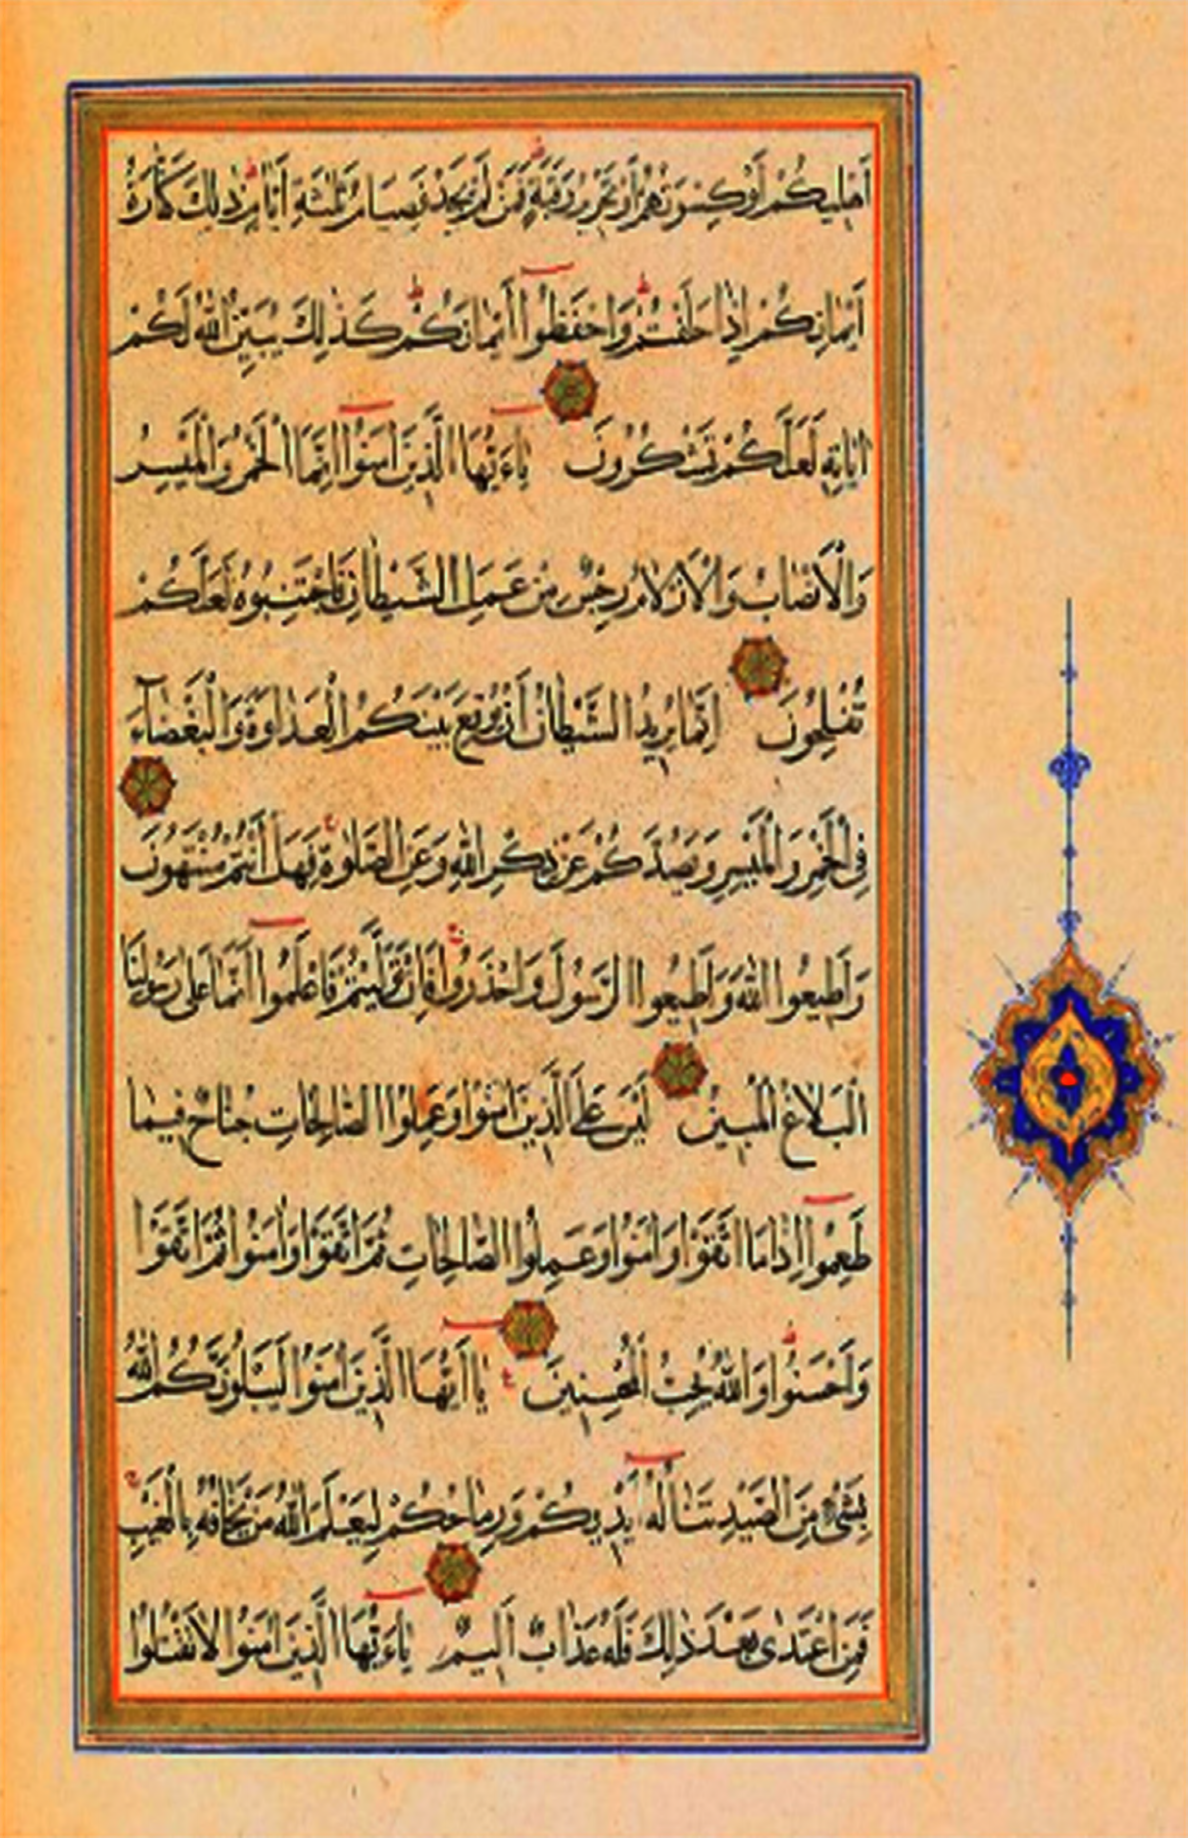 أَهْلِيكُمْ أَوْ كِسْوَتُهُمْ أَوْ تَحْرِيرُ رَقَبَةٍ فَمَنْ لَمْ يَجِدْ فَصِيَامُ ثَلٰثَةِ أَيَّامٍ ذٰلِكَ كَفَّارَةُ
أَيْمَانِكُمْ إِذَا حَلَفْتُمْ وَاحْفَظُوا أَيْمَانَكُمْ كَذٰلِكَ يُبَيِّنُ اللّٰهُ لَكُمْ
اٰيَاتِهِ لَعَلَّكُمْ تَشْكُرُونَ يٰاءَيُّهَا الَّذِينَ اٰمَنُوا إِنَّمَا الْخَمْرُ وَالْمَيْسِرُ
وَالْأَنْصَابُ وَالْأَزْلَامُ رِجْسٌ مِنْ عَمَلِ الشَّيْطَانِ فَاجْتَنِبُوهُ لَعَلَّكُمْ
تُفْلِحُونَ إِنَّمَا يُرِيدُ الشَّيْطَانُ أَنْ يُوقِعَ بَيْنَكُمُ الْعَدَاوَةَ وَالْبَغْضَآءَ
فِي الْخَمْرِ وَالْمَيْسِرِ وَيَصُدَّكُمْ عَنْ ذِكْرِ اللّٰهِ وَعَنِ الصَّلٰوةِ فَهَلْ أَنْتُمْ مُنْتَهُونَ
وَأَطِيعُوا اللّٰهَ وَأَطِيعُوا الرَّسُولَ وَاحْذَرُوا فَإِنْ تَوَلَّيْتُمْ فَاعْلَمُوا أَنَّمَا عَلٰى رَسُولِنَا
الْبَلَاغُ الْمُبِينُ لَيْسَ عَلَى الَّذِينَ اٰمَنُوا وَعَمِلُوا الصَّالِحَاتِ جُنَاحٌ فِيمَا
طَعِمُوا إِذَا مَا اتَّقَوْا وَاٰمَنُوا وَعَمِلُوا الصَّالِحَاتِ ثُمَّ اتَّقَوْا وَاٰمَنُوا ثُمَّ اتَّقَوْا
وَأَحْسَنُوا وَاللّٰهُ يُحِبُّ الْمُحْسِنِينَ يَا أَيُّهَا الَّذِينَ اٰمَنُوا لَيَبْلُوَنَّكُمُ اللّٰهُ
بِشَيْءٍ مِنَ الصَّيْدِ تَنَالُهُ أَيْدِيكُمْ وَرِمَاحُكُمْ لِيَعْلَمَ اللّٰهُ مَنْ يَخَافُهُ بِالْغَيْبِ
فَمَنِ اعْتَدٰى بَعْدَ ذٰلِكَ فَلَهُ عَذَابٌ أَلِيمٌ يٰاءَيُّهَا الَّذِينَ اٰمَنُوا لَا تَقْتُلُوا